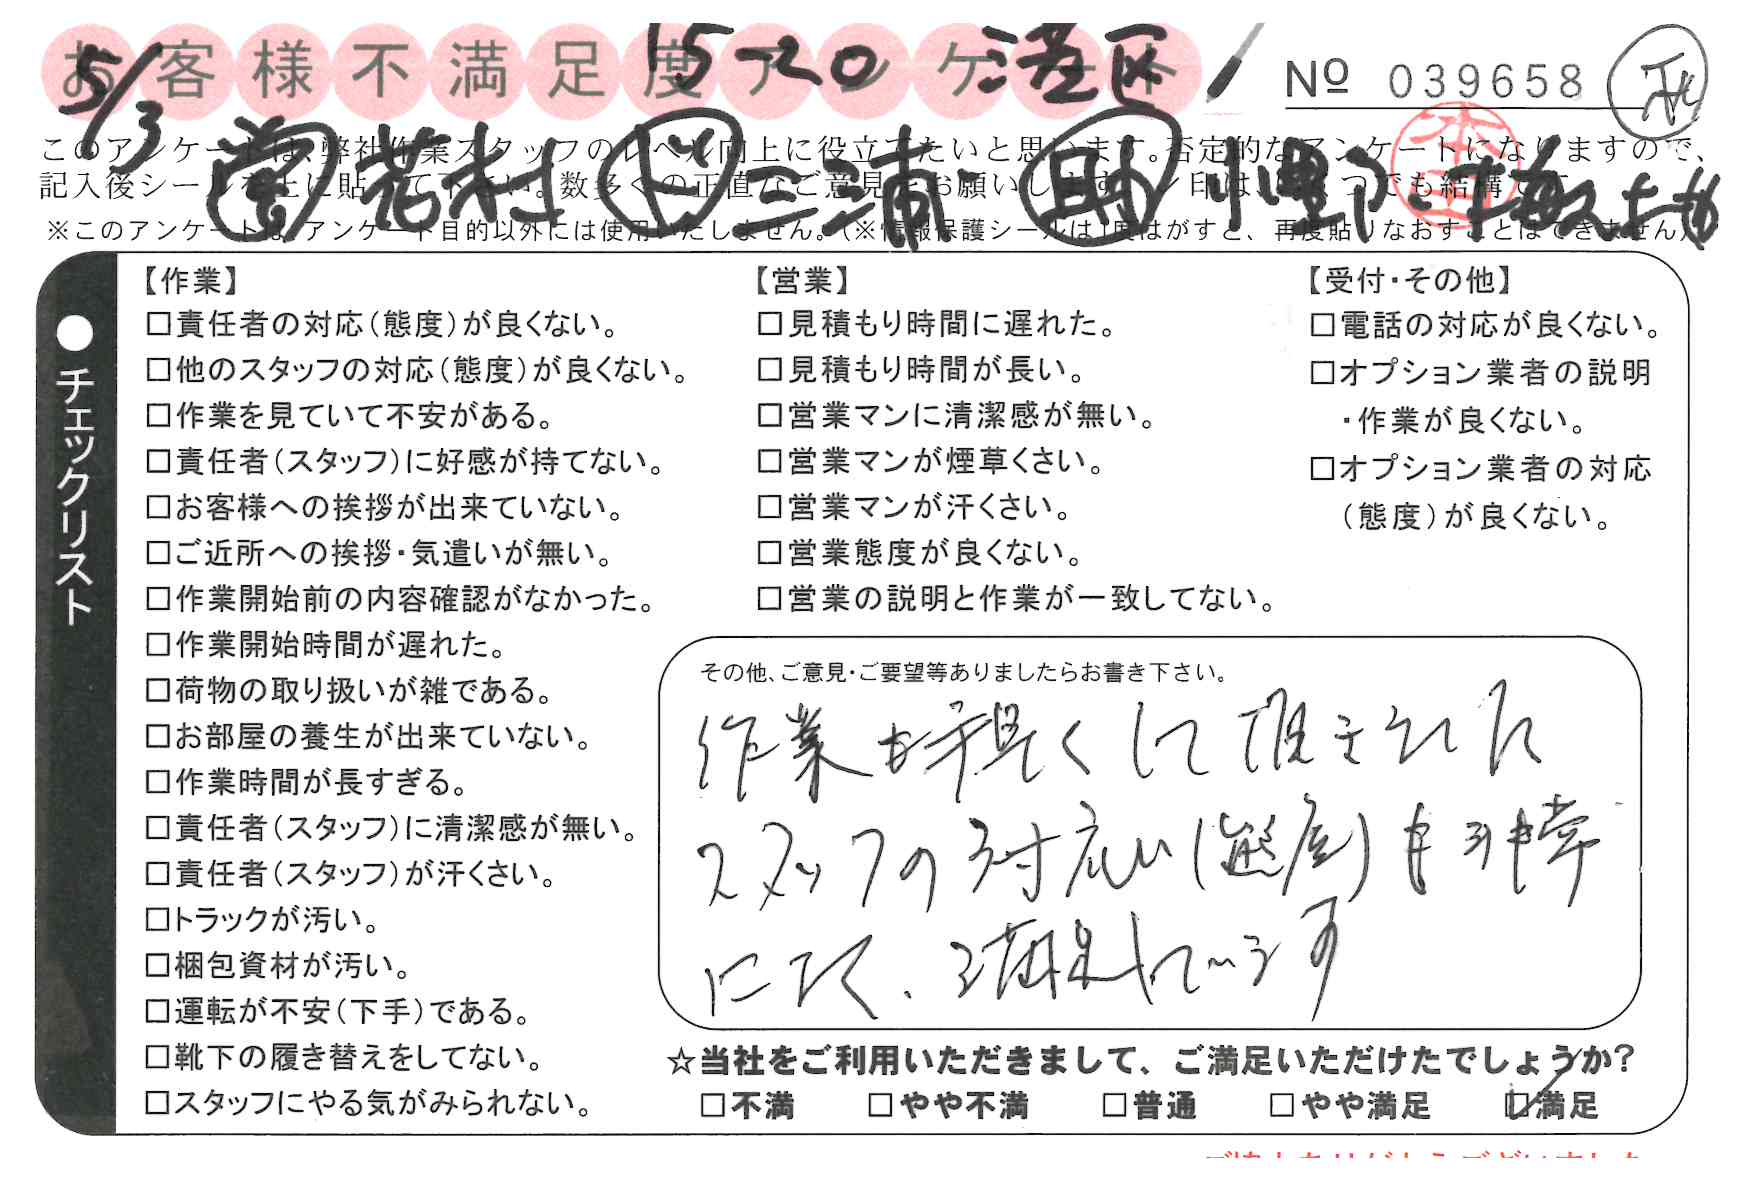 お客様不満足度アンケート
5/3
15-20 港区
Nº 039658
このアンケートは、弊社作業スタッフのレベル向上に役立てたいと思います。否定的なアンケートになりますので、
記入後シールを上に貼って下さい。数多くの正直なご意見をお願いします。
※このアンケートは、アンケート目的以外には使用いたしません。(※情報保護シールは1度はがすと、再度貼りなおすことはできません)
営 若村 ド 三浦 助 小野
本田
●チェックリスト
【作業】
□責任者の対応(態度)が良くない。
□他のスタッフの対応(態度)が良くない。
□作業を見ていて不安がある。
□責任者(スタッフ)に好感が持てない。
□お客様への挨拶が出来ていない。
□ご近所への挨拶・気遣いが無い。
□作業開始前の内容確認がなかった。
□作業開始時間が遅れた。
□荷物の取り扱いが雑である。
□お部屋の養生が出来ていない。
□作業時間が長すぎる。
□責任者(スタッフ)に清潔感が無い。
□責任者(スタッフ)が汗くさい。
□トラックが汚い。
□梱包資材が汚い。
□運転が不安(下手)である。
□靴下の履き替えをしてない。
□スタッフにやる気がみられない。
【営業】
□見積もり時間に遅れた。
□見積もり時間が長い。
□営業マンに清潔感が無い。
□営業マンが煙草くさい。
□営業マンが汗くさい。
□営業態度が良くない。
□営業の説明と作業が一致してない。
【受付・その他】
□電話の対応が良くない。
□オプション業者の説明
・作業が良くない。
□オプション業者の対応
(態度)が良くない。
その他、ご意見・ご要望等ありましたらお書き下さい。
作業も手早くして頂きました
スタッフの対応い(態度)も非常
に良く、満足しています
☆当社をご利用いただきまして、ご満足いただけたでしょうか?
□不満 □やや不満 □普通 □やや満足 ☑満足